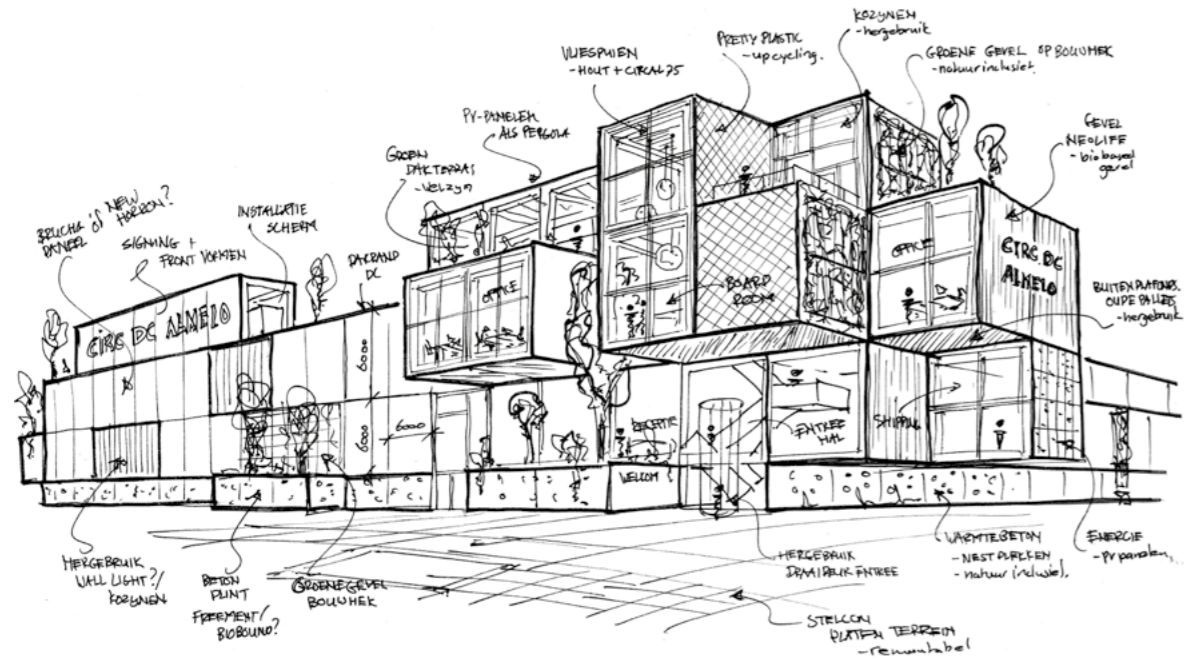 KOZYNEN
-hergebruik
PRETTY PLASTIC
-upcycling.
VLIESPUIEN
-HOUT + CIRCAL 75
GROENE GEVEL OP BOUWHEK
-natuurinclusief.
PV-PANELEN
ALS PERGOLA
GEVEL
NEOLIFE
-biobased
gevel
GROEN
DAKTERRAS
-welzyn
BRUCHA of NEW
PANEEL HORIZON?
SIGNING +
FRONT VORMEN
INSTALLATIE
SCHERM
DAKRAND
DC
OFFICE
OFFICE
CIRC. DC
ALMELO
BOARD
ROOM
BUITENPLAFONDS.
OUDE PALLETS
-hergebruik
CIRC DC ALMELO
6000
6000
6000
RECEPTIE
ENTREE
HAL
SHIPPING
WELCOM
HERGEBRUIK
WALL LIGHT?/
KOZYNEN
BETON
PLINT
FREEMENT/
BIOBOUND?
GROENE GEVEL
BOUWHEK
HERGEBRUIK
DRAAIDEUR ENTREE
WARMTEBETON
-NESTPLEKKEN
-natuur inclusief.
ENERGIE
-pv panelen.
STELCON
PLATEN TERREIN
-remontabel